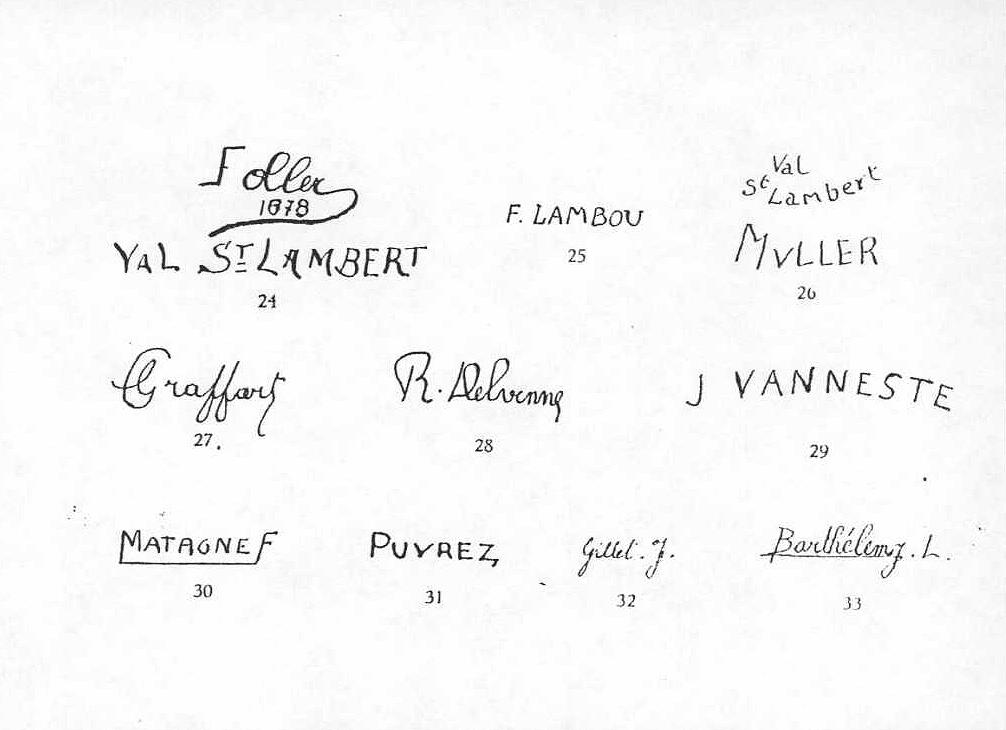 F Oller
1878
VAL ST LAMBERT
24
F. LAMBOU
25
Val
St Lambert
MVLLER
26
Graffart
27.
R. Delvenne
28
J VANNESTE
29
MATAGNE F
30
PUVREZ
31
Gillet. J.
32
Barthélemy. L.
33